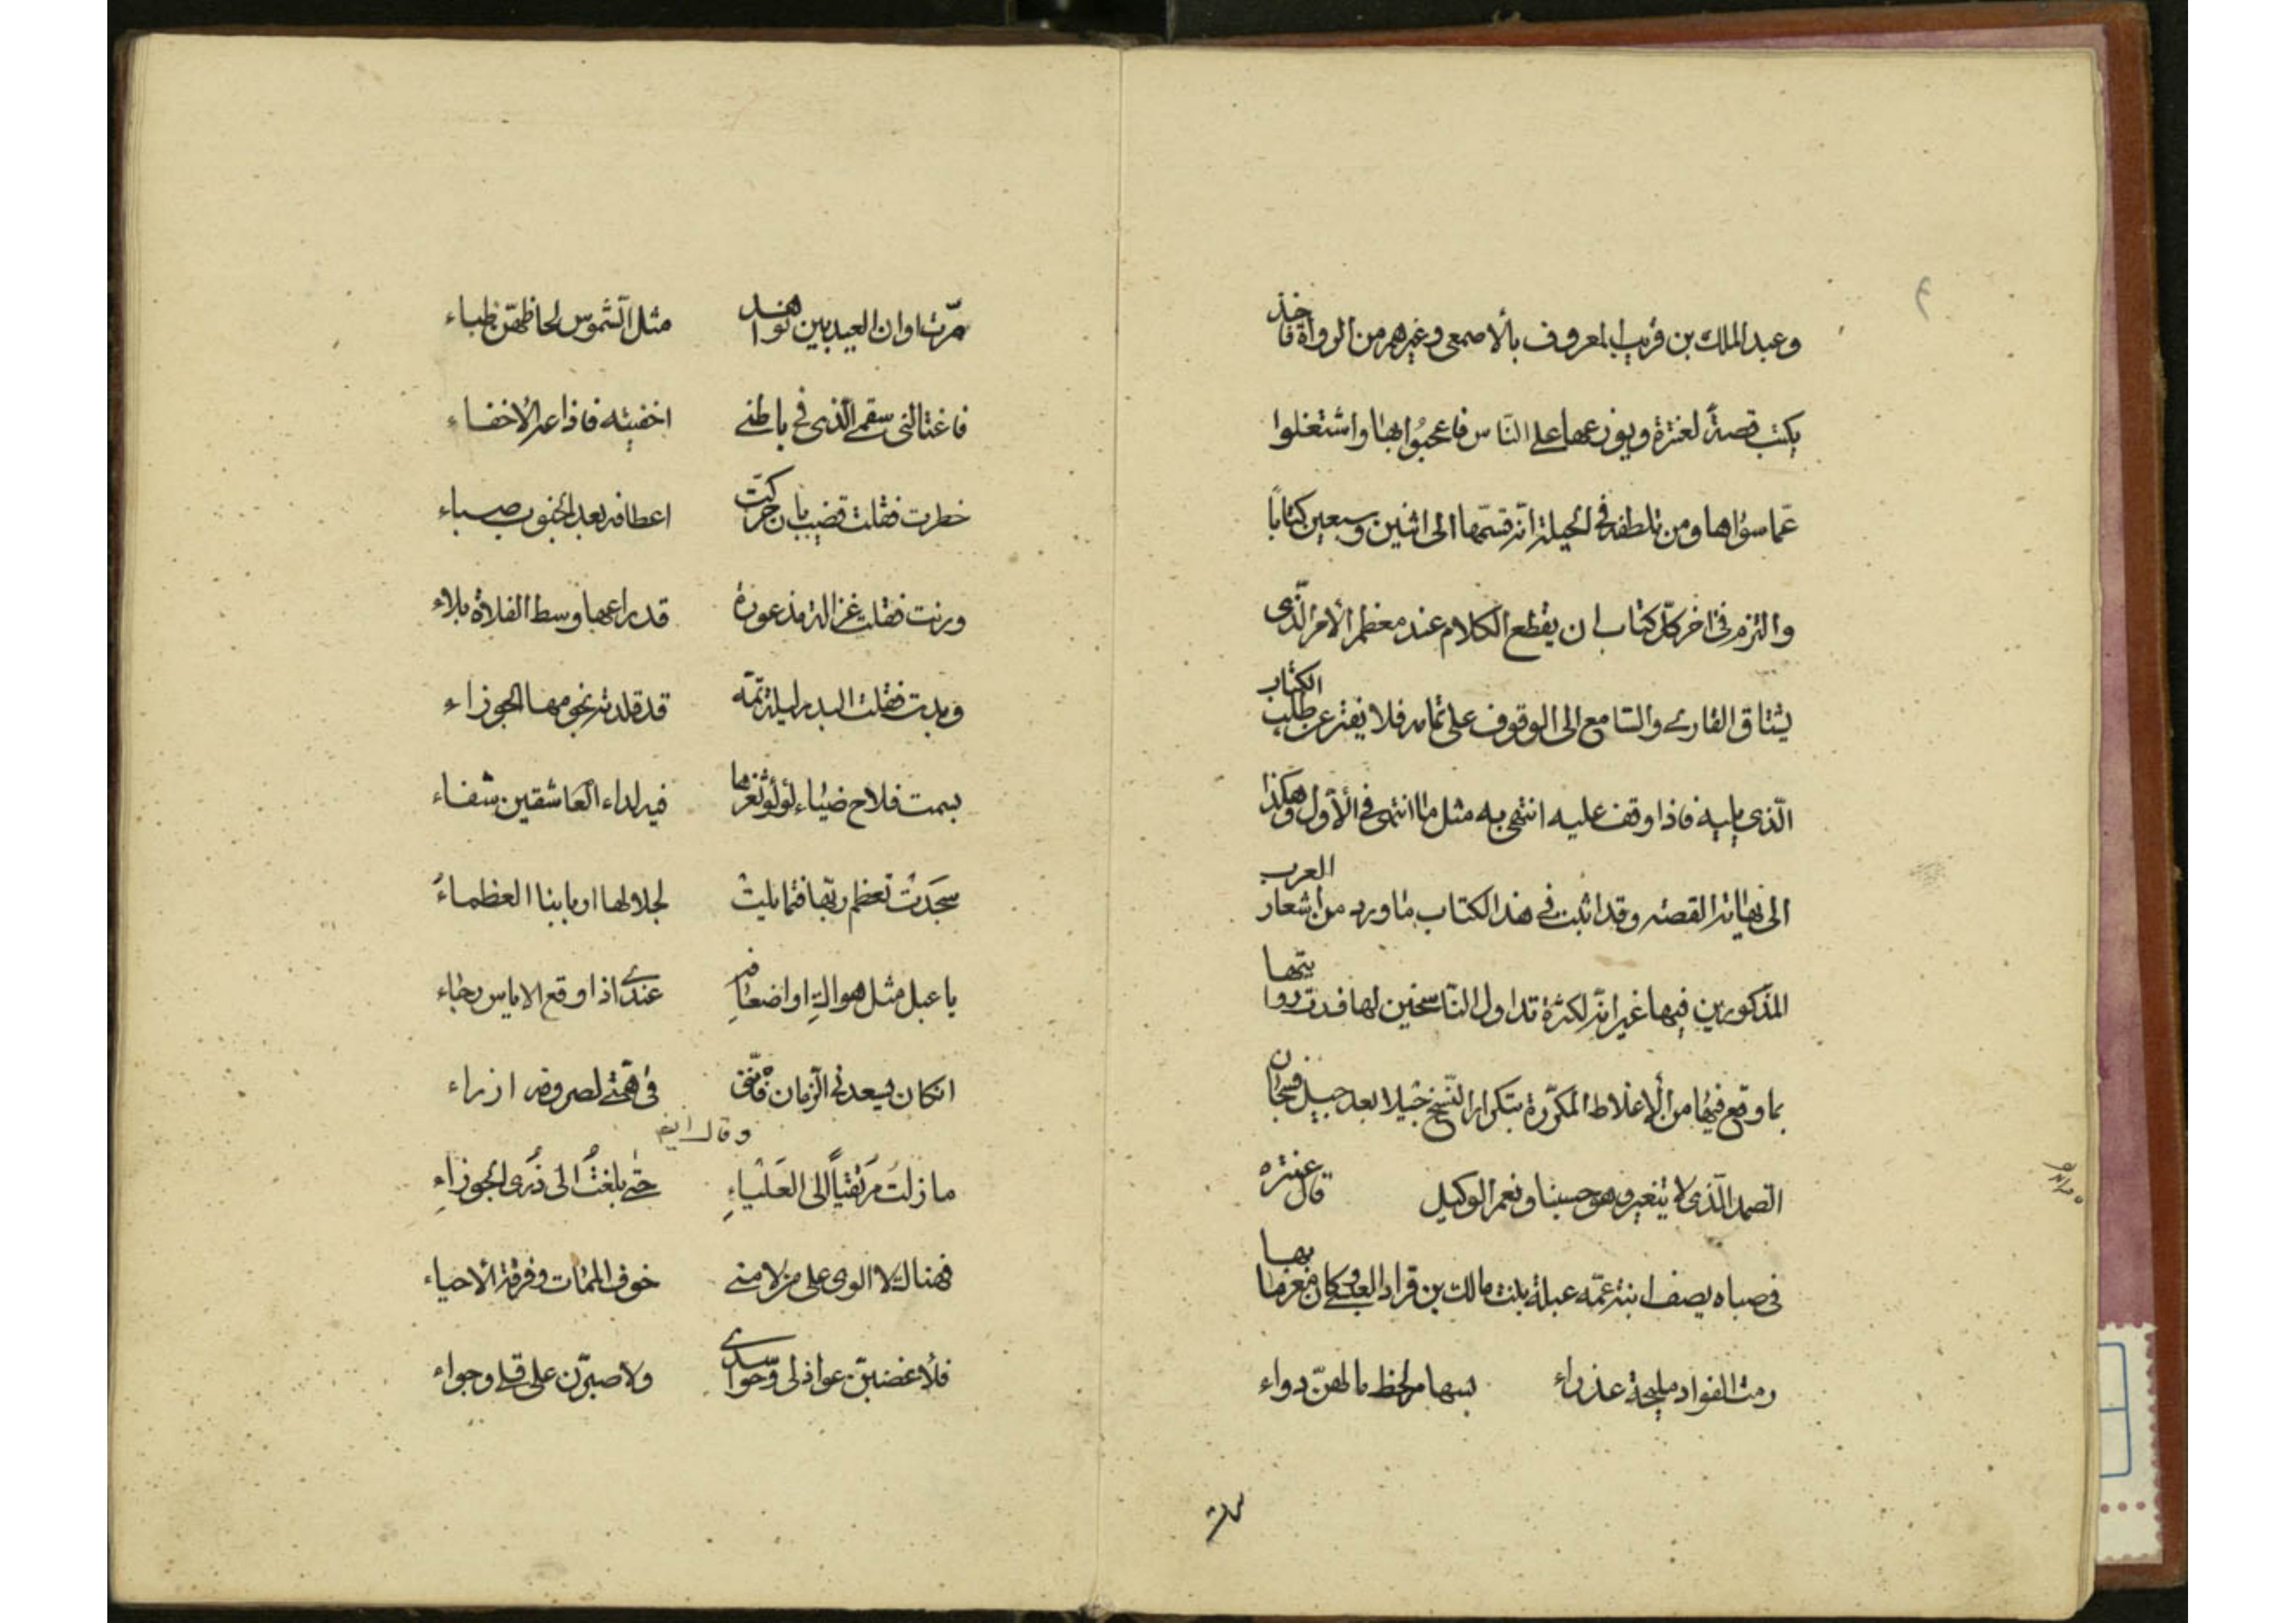 وعبد الملك بن قريب المعروف بالاصمعى وغيرهم من الرواة فاخذ
يكتب قصةً لعنترة ويوزعها على النّاس فاعجبُوا بها واشتغلوا
عمّا سواها ومن تلطفه فى الحيلة انّه قسّمها الى اثنين وسبعين كتابًا
والتزم فى اخر كلّ كتاب ان يقطع الكلام عند معظم الأمر الّذى
يشتاق القارئ والسّامع الى الوقوف على تمامه فلا يفتر عن طلب الكتاب
الّذى يليه فاذا وقف عليه انتهى به مثل ما انتهى فى الأوّل وهكذا
الى نهاية القصّه وقد اثبت فى هذا الكتاب ما ورد من اشعار العرب
المذكورين فيها غير انّه لكثرة تداول النّاسخين لها فسدت روايتها
بما وقع فيها من الإغلاط المكرّرة بتكرار النّسخ جيلا بعد جيل فسبحان
الصّمد الّذى لا يتغير وهو حسبنا ونعم الوكيل قال عنتره
فى صباه يصف ابنة عمّه عبلة بنت مالك بن قراد العبسى وكان مغرما بها
رمت الفواد مليحة عذراء بسهام لحظ ما لهنّ دواء
مرّت
مرّت اوان العيد بين نواهد مثل الشّموس لحاظهنّ ظباء
فاغتالنى سقمى الّذى فى باطنى اخفيته فاذاعه الاخفاء
خطرت فقلت قضيب بان حركت اعطافه بعد الجنوب صباء
ورنت فقلت غزالة مذعورة قد راعها وسط الفلاة بلاء
وبدت فقلت البدر ليلة تمّه قد قلدته نجومها الجوزاء
بسمت فلاح ضياء لؤلؤ ثغرها فيه لداء العاشقين شفاء
سجَدَتْ تعظم ربّها فتمايلتْ لجلالها اربابنا العظماءُ
يا عبل مثل هواكِ او اضعافه عندى اذا وقع الاياس رجاء
انكان يسعدنى الزّمان فانّنى فى همّتى لصروفه ازراء
وقال ايضا
ما زلتُ مرَتقيًا الى العَلْياءِ حتّى بلغتُ الى ذُرى الجوزاءِ
فهناك لا الوى على من لامنى خوف الممات وفرقة الأحياء
فلأغضبنّ عواذلى وحواسدى ولاصبرّن على قلى وجواء